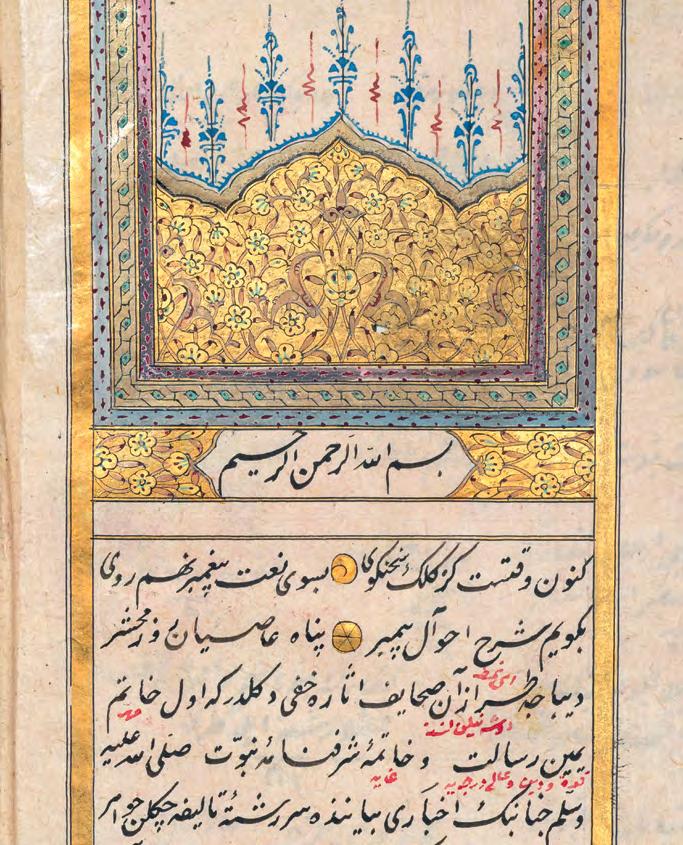 بسم الله الرحمن الرحيم
كنون وقتست كز كلك سخنكوى بسوى نعت پيغمبر نهم روى
بكويم شرح احوال پيمبر پناه عاصيان روز محشر
ديباجه طرازان صحايف اثاره خفى دكلدركه اول خاتم
يمين رسالت و خاتمۀ شرفنامۀ نبوت صلى الله عليه
وسلم جنابنك اخبارى بياننده سررشتۀ تأليفه چكيلن جواهر